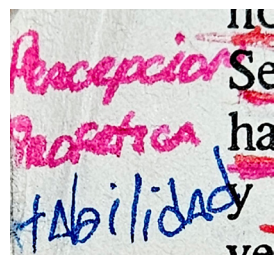 Percepcion Se
Profetica ha
HAbilidad y